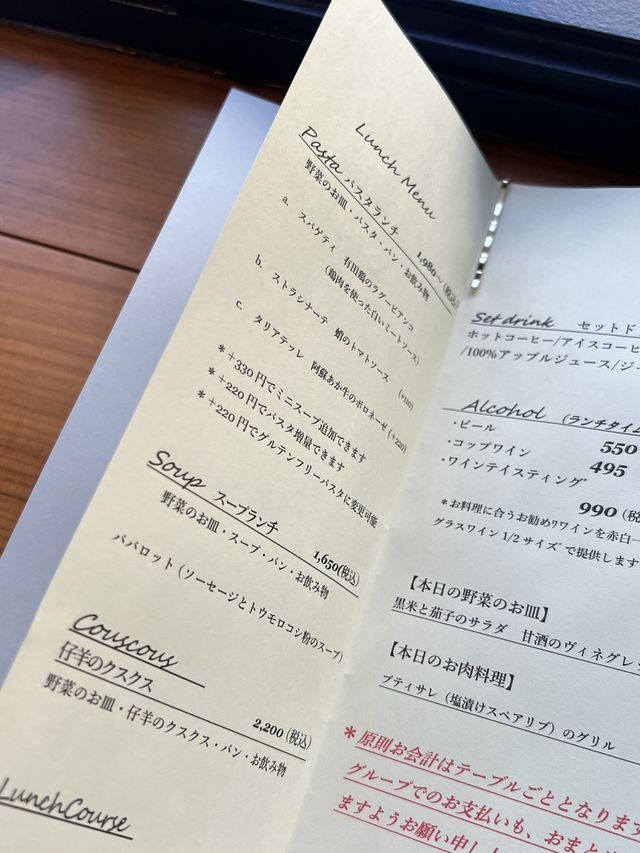 Lunch Menu
Pasta パスタランチ 1,980～(税込)
野菜のお皿・パスタ・パン・お飲み物
a. スパゲティ 有田鶏のラグービアンコ
(鶏肉を使った白いミートソース)
b. ストラシナーテ 蛸のトマトソース
c. タリアテッレ 阿蘇あか牛のボロネーゼ (+220)
*+330円でミニスープ追加できます
*+220円でパスタ増量できます
*+220円でグルテンフリーパスタに変更可能
Soup スープランチ 1,650(税込)
野菜のお皿・スープ・パン・お飲み物
パパロット (ソーセージとトウモロコシ粉のスープ)
Couscous
仔羊のクスクス 2,200 (税込)
野菜のお皿・仔羊のクスクス・パン・お飲み物
LunchCourse
Set drink セットド
ホットコーヒー/アイスコーヒ
/100%アップルジュース/ジ
Alcohol (ランチタイム
・ビール 550
・コップワイン 495
・ワインテイスティング 990 (税
*お料理に合うお勧めワインを赤白
グラスワイン1/2サイズで提供します
【本日の野菜のお皿】
黒米と茄子のサラダ 甘酒のヴィネグレ
【本日のお肉料理】
プティサレ (塩漬けスペアリブ) のグリル
*原則お会計はテーブルごととなります
グループでのお支払いも、おまと
ますようお願い申し